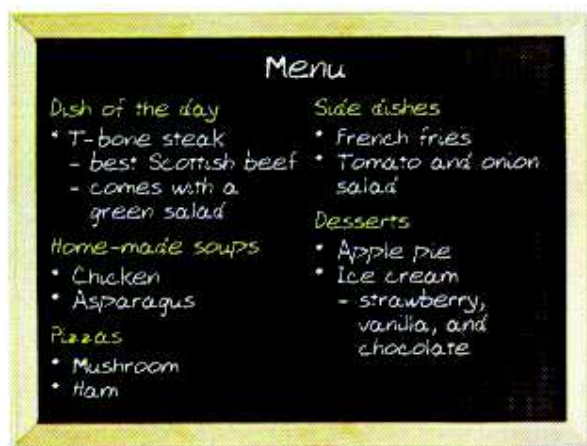 Menu
Dish of the day
• T-bone steak
- best Scottish beef
- comes with a
green salad
Home-made soups
• Chicken
• Asparagus
Pizzas
• Mushroom
• Ham
Side dishes
• French fries
• Tomato and onion
salad
Desserts
• Apple pie
• Ice cream
- strawberry,
vanilla, and
chocolate